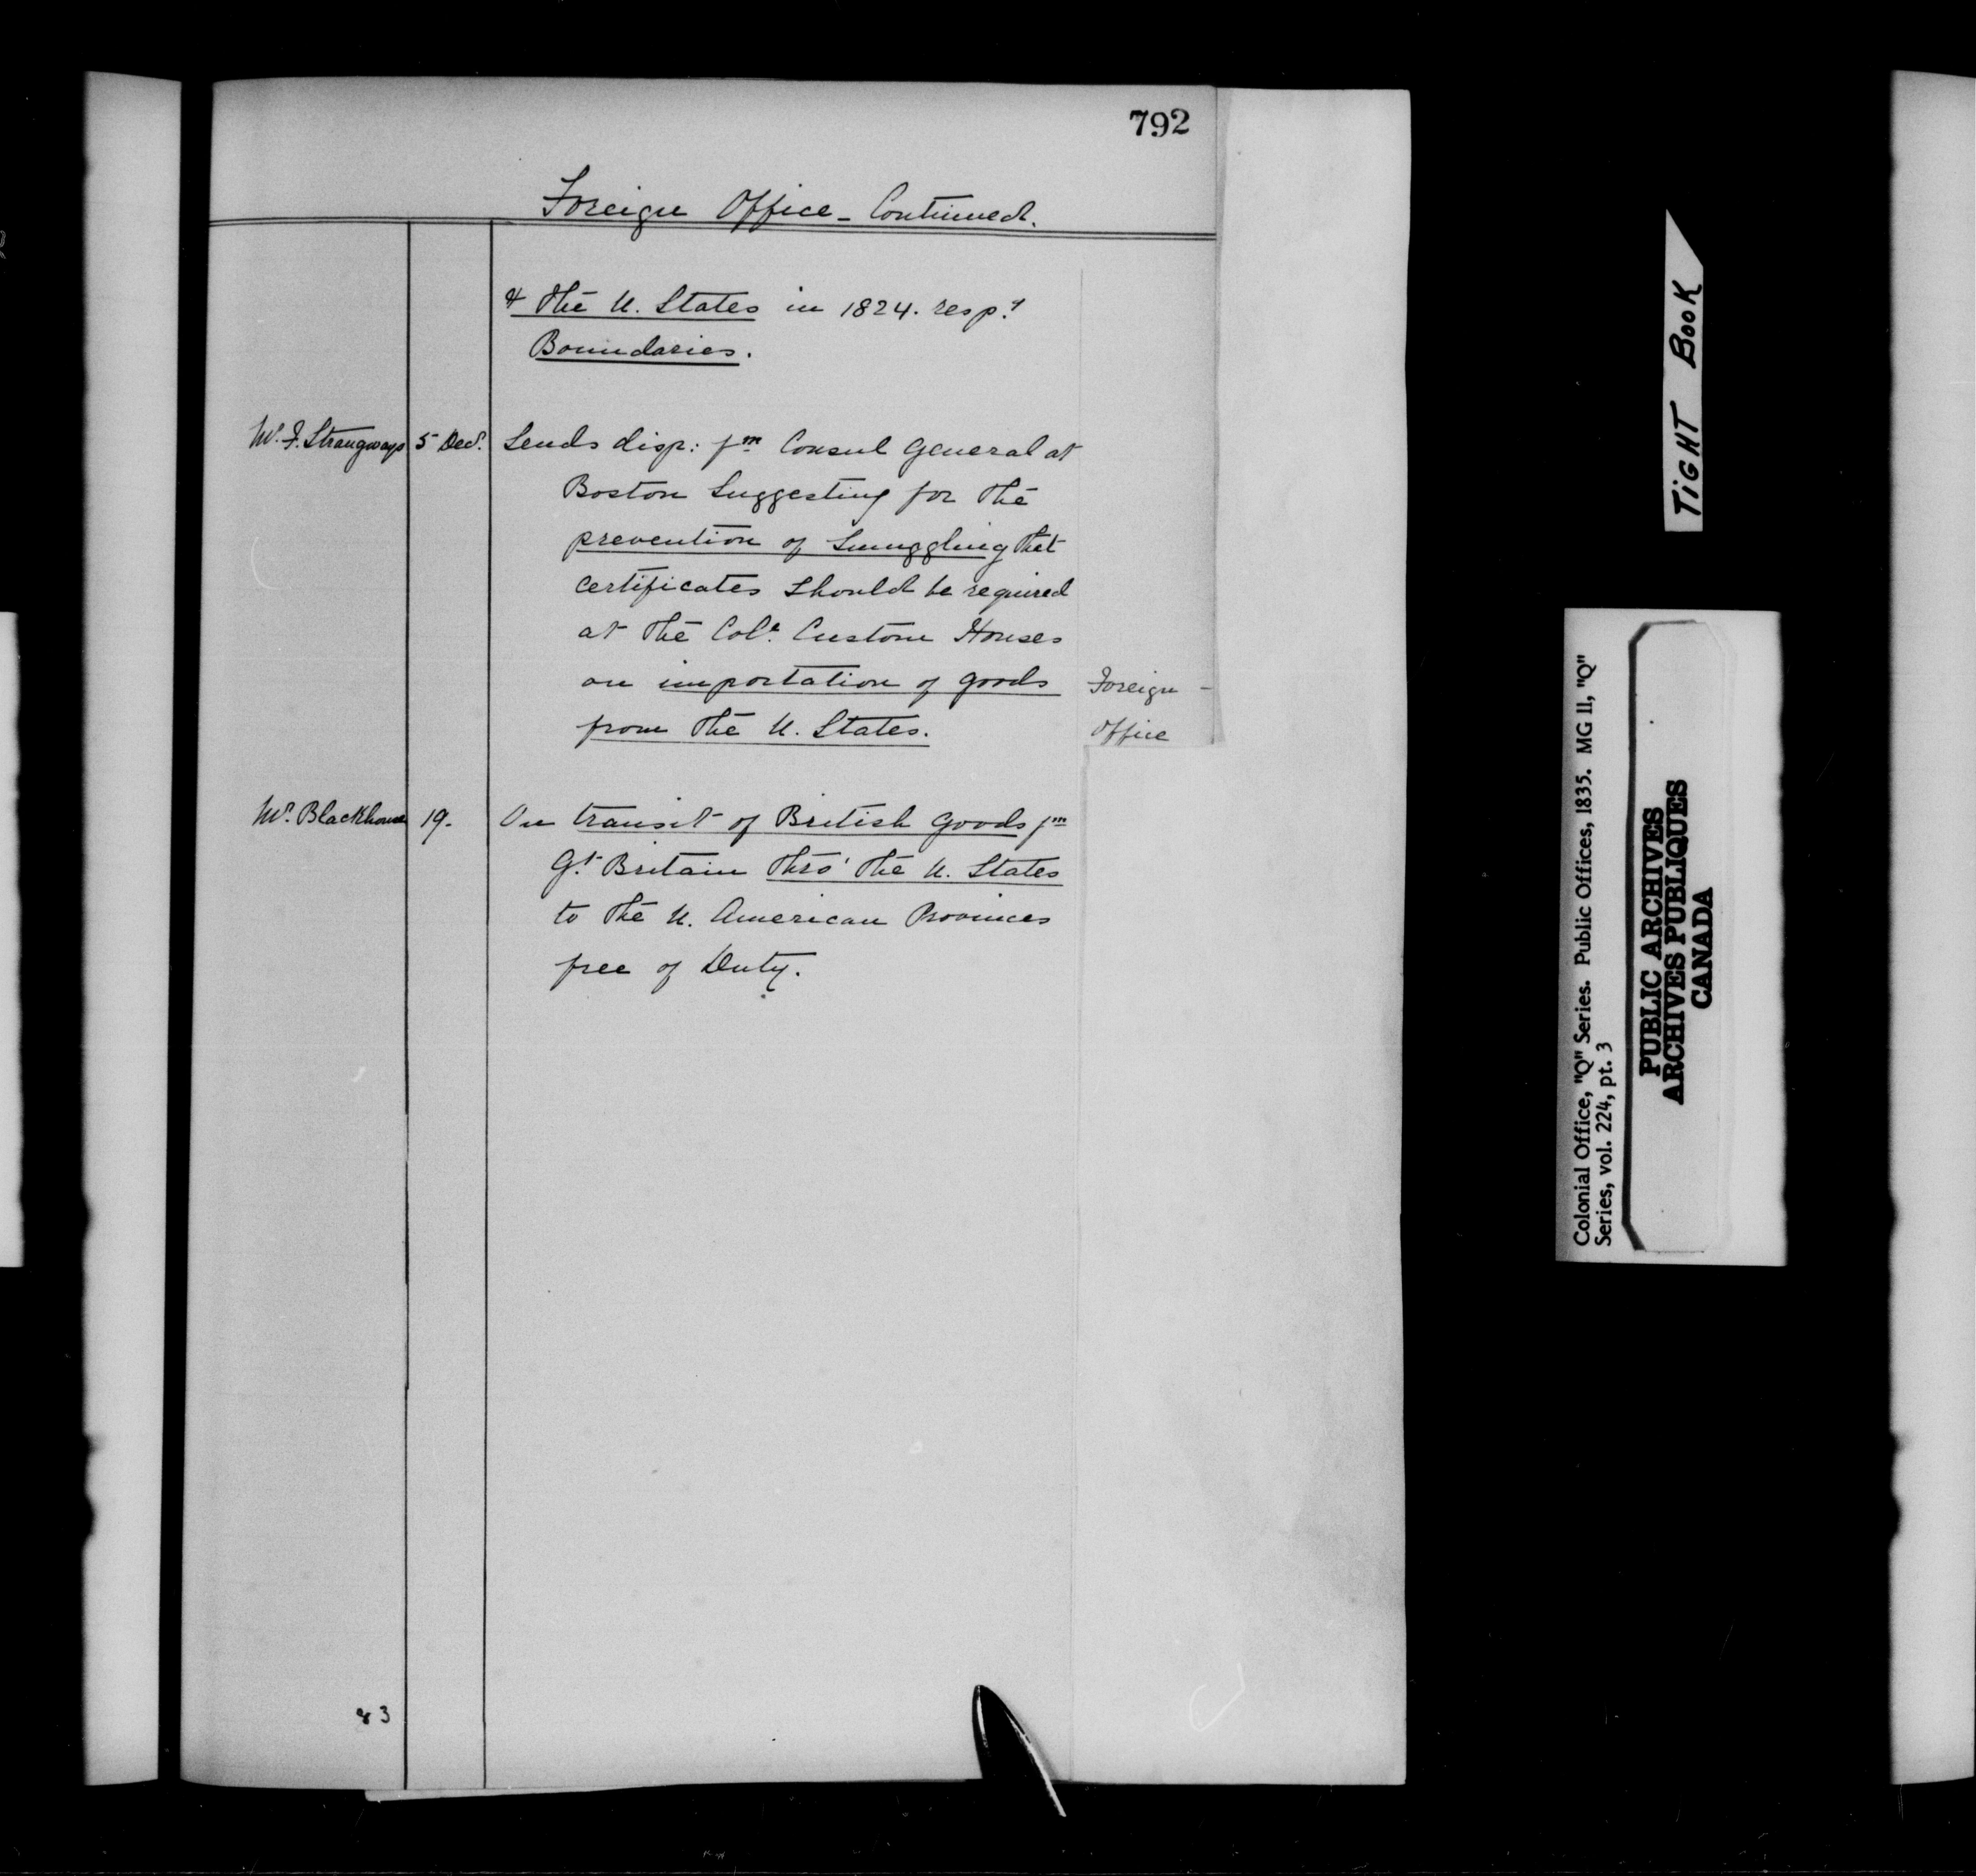 792
Foreign Office - Continued.
& the U. States in 1824. resp.g
Boundaries.
Mr. F. Strangways 5 Decr. Sends disp: fm Consul General at
Boston Suggesting for the
prevention of Smuggling that
certificates should be required
at the Coll. Custom Houses
on importation of goods
from the U. States.
Foreign -
Office
Mr. Blackhouse 19. On transit of British Goods fm
Gt. Britain thro' the U. States
to the N. American Provinces
free of Duty.
83
TIGHT BOOK
Colonial Office, "Q" Series. Public Offices, 1835. MG 11, "Q"
Series, vol. 224, pt. 3
PUBLIC ARCHIVES
ARCHIVES PUBLIQUES
CANADA